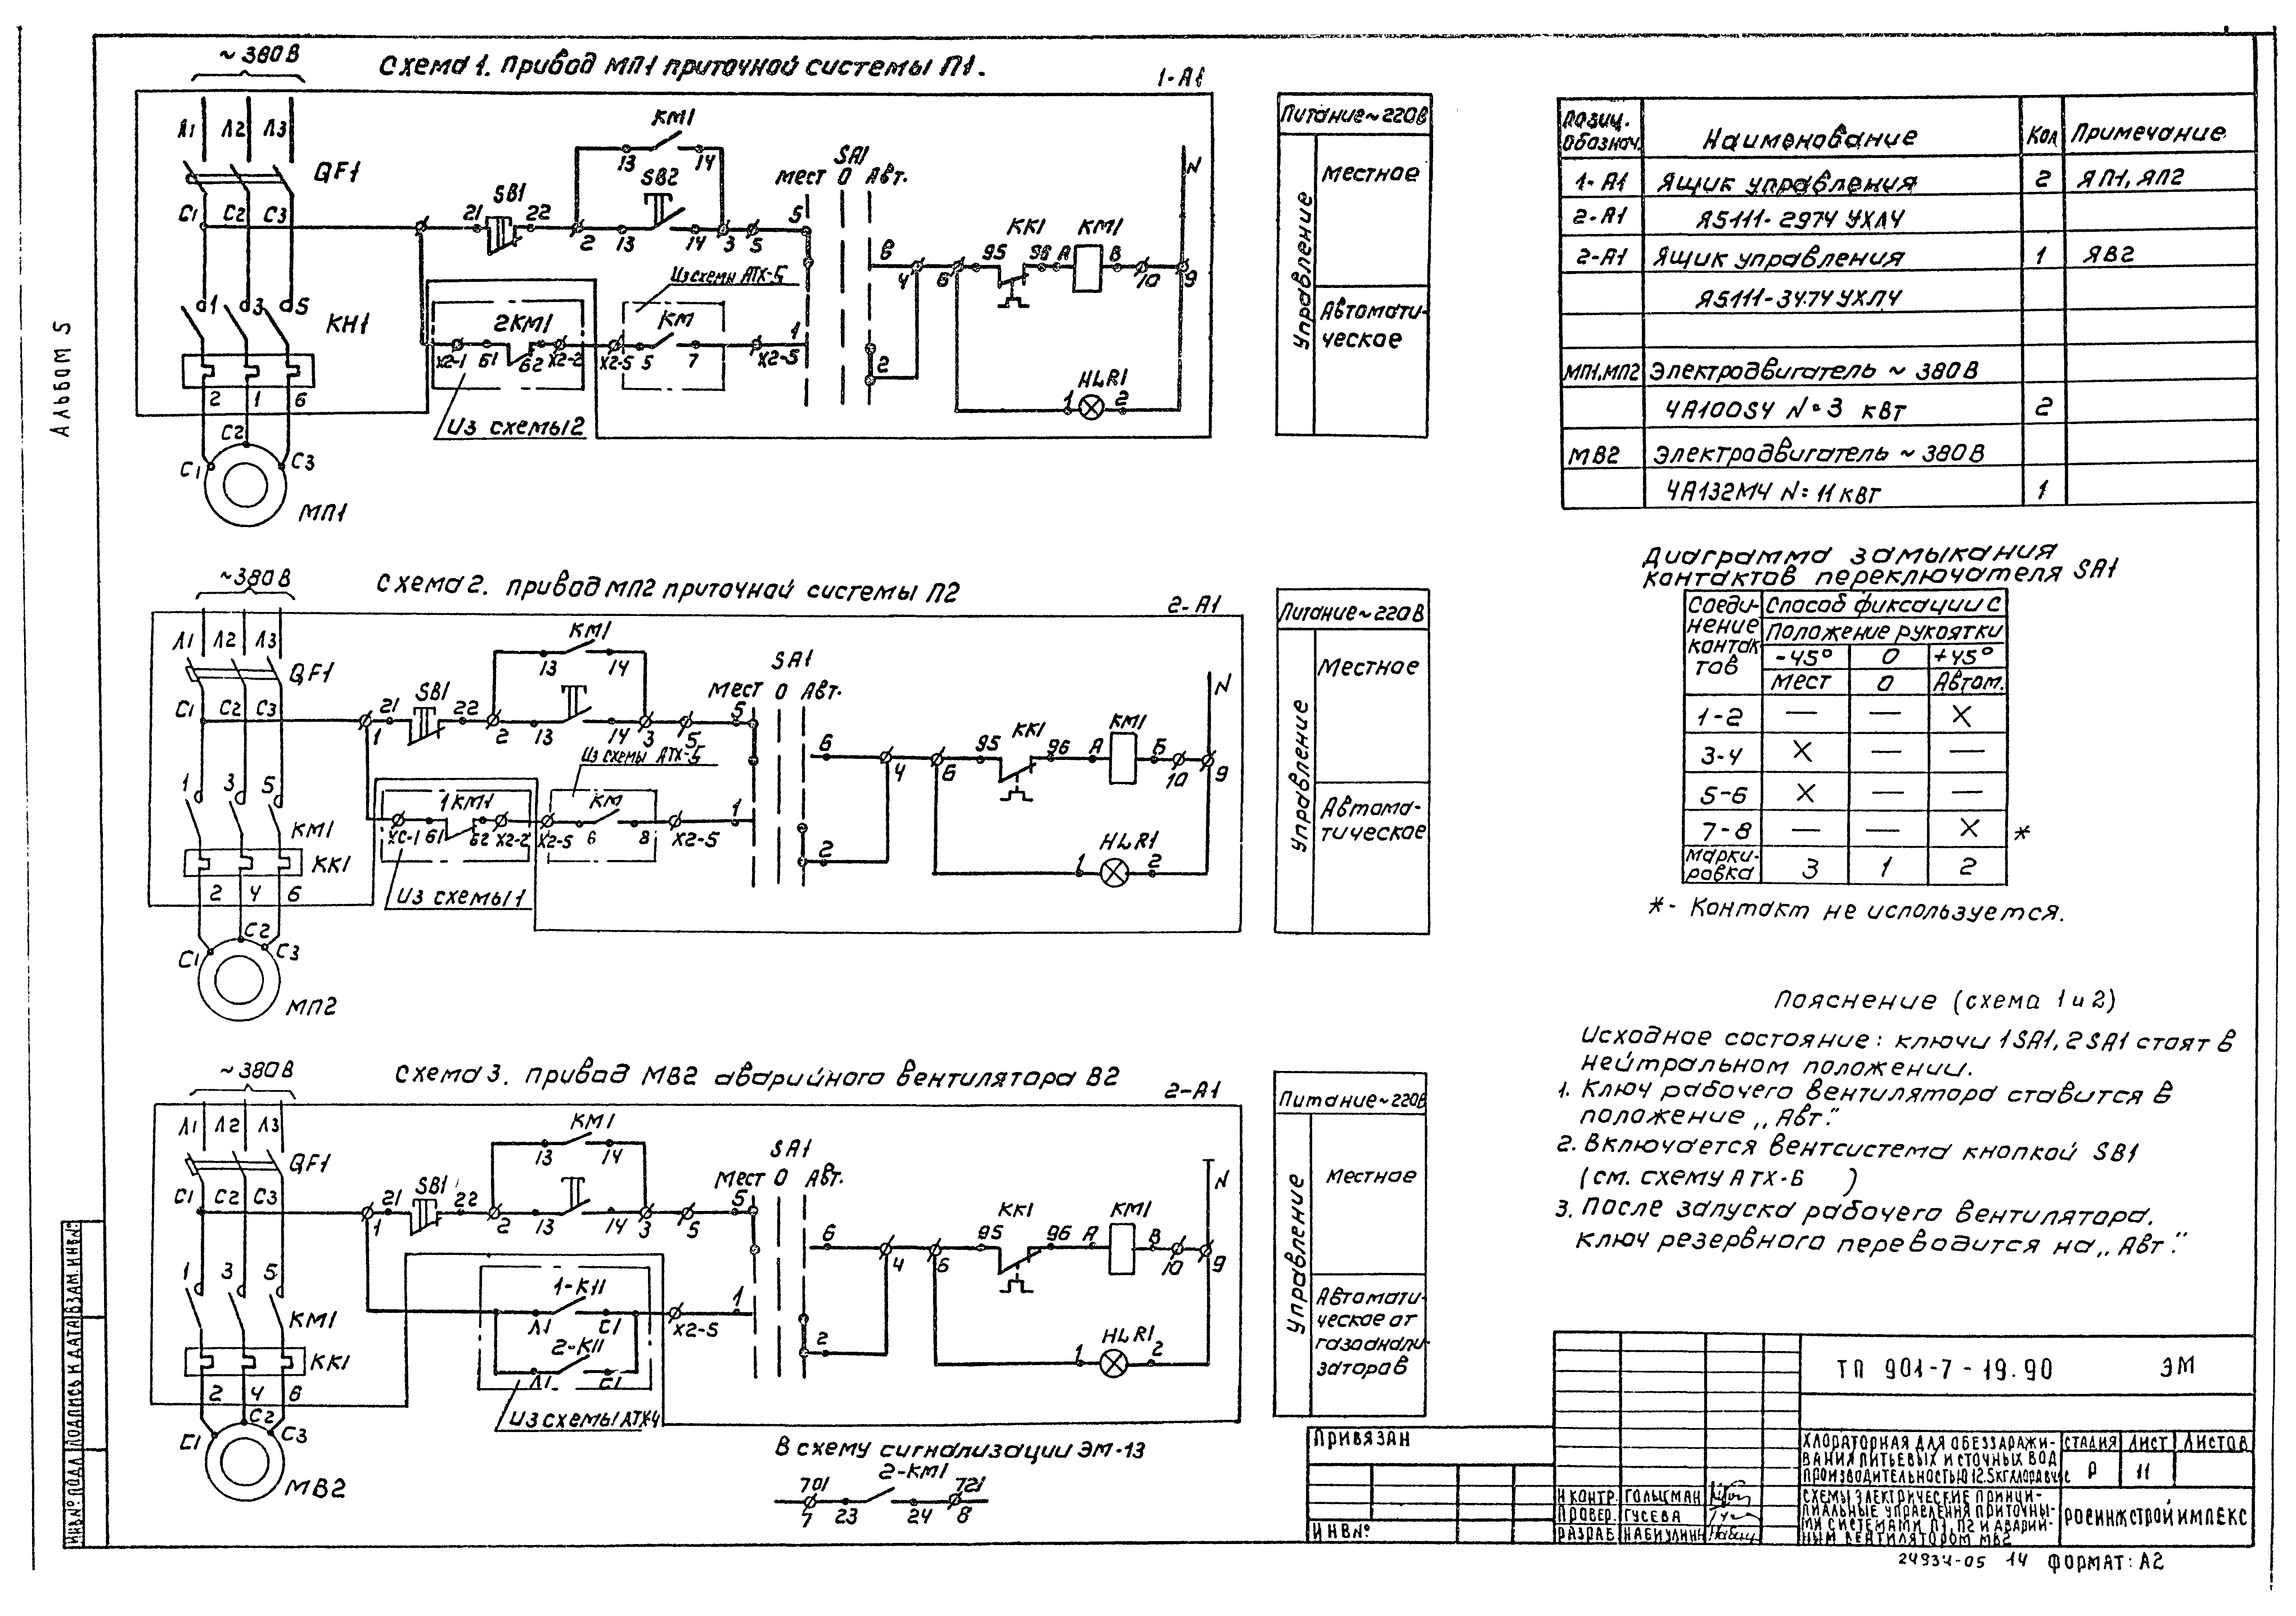 Альбом 5
Схема 1. Привод МП1 приточной системы П1.
1-А1
~380В
Л1 Л2 Л3
QF1
С1 С2 С3
1 3 5
КН1
2 1 6
С2
С1 С3
МП1
КМ1
13 14
SB1 SB2
21 22 2 13 14 3 5
SA1
Мест 0 Авт.
5
Из схемы АТХ-5
2КМ1 КМ
Х2-1 61 62 Х2-2 Х2-5 5 7 Х2-5
1
Из схемы 2
6 4 6 95 КК1 96 А КМ1 В 10 9
N
2
HLR1
1 2
Питание ~220В
Управление
Местное
Автомати-
ческое
Схема 2. Привод МП2 приточной системы П2
2-А1
~380В
Л1 Л2 Л3
QF1
С1 С2 С3
1 3 5
КМ1
КК1
2 4 6
С2
С1 С3
МП2
КМ1
13 14
SB1
1 21 22 2 13 14 3 5
SA1
Мест 0 Авт.
5
Из схемы АТХ-5
1КМ1 КМ
ХС-1 61 62 Х2-2 Х2-5 6 8 Х2-5
1
Из схемы 1
6 4 6 95 КК1 96 А КМ1 Б 10 9
N
2
HLR1
1 2
Питание ~220В
Управление
Местное
Автома-
тическое
Схема 3. Привод МВ2 аварийного вентилятора В2
2-А1
~380В
Л1 Л2 Л3
QF1
С1 С2 С3
1 3 5
КМ1
КК1
2 4 6
С2
С1 С3
МВ2
КМ1
13 14
SB1
1 21 22 2 13 14 3 5
SA1
Мест 0 Авт.
5
1-К11
Л1 С1
2-К11
Л1 С1
Х2-5
1
Из схемы АТХ4
6 4 6 95 КК1 96 А КМ1 В 10 9
N
2
HLR1
1 2
Питание ~220В
Управление
Местное
Автомати-
ческое от
газоанали-
заторов
В схему сигнализации ЭМ-13
2-КМ1
701 721
7 23 24 8
Позиц. обознач. Наименование Кол Примечание
1-А1 Ящик управления 2 ЯП1, ЯП2
2-А1 Я5111-2974 УХЛ4
2-А1 Ящик управления 1 ЯВ2
Я5111-3474 УХЛ4
МП1, МП2 Электродвигатель ~ 380В
4А100S4 N=3 кВт 2
МВ2 Электродвигатель ~ 380В
4А132М4 N=11 кВт 1
Диаграмма замыкания
контактов переключателя SA1
Соеди-
нение
контак-
тов
Способ фиксации С
Положение рукоятки
-45° 0 +45°
Мест 0 Автом.
1-2 — — X
3-4 X — —
5-6 X — —
7-8 — — X *
Марки-
ровка 3 1 2
*- Контакт не используется.
Пояснение (схема 1 и 2)
Исходное состояние: ключи 1SA1, 2SA1 стоят в
нейтральном положении.
1. Ключ рабочего вентилятора ставится в
положение „Авт."
2. Включается вентсистема кнопкой SB1
(см. схему АТХ-6 )
3. После запуска рабочего вентилятора.
ключ резервного переводится на „Авт."
ТП 901-7-19.90 ЭМ
Хлораторная для обеззаражи-
вания питьевых и сточных вод
производительностью 12.5 кг хлора в час
Стадия Лист Листов
Р 11
Схемы электрические принци-
пиальные управления приточны-
ми системами П1, П2 и аварий-
ным вентилятором МВ2
РОСИНЖСТРОЙИМПЕКС
Н контр. Гольцман
Провер. Гусева
Разраб Набиулин
Привязан
Инв №
Инв № подл Подпись и дата Взам. инв №
24934-05 14 Формат: А2